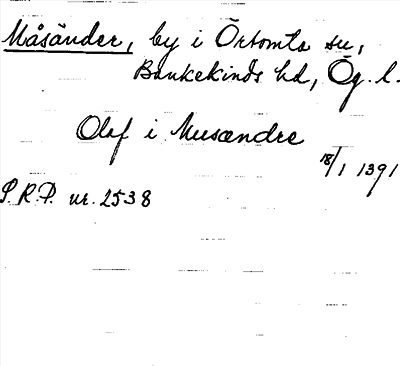 Måsänder, by i Örtomta sn,
Bankekinds hd, Ög. l.
Olef i Musændre
18/1 1391
S.R.P. nr. 2538